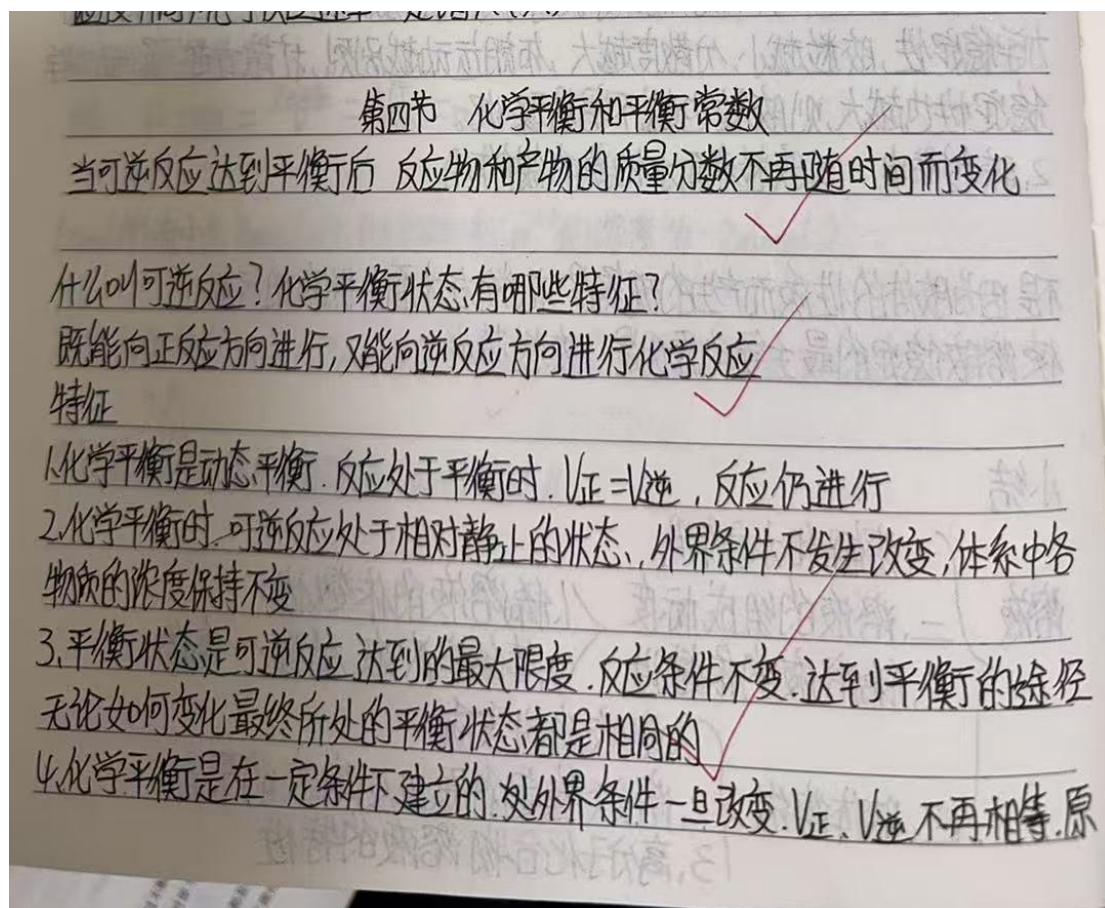 第四节 化学平衡和平衡常数
当可逆反应达到平衡后 反应物和产物的质量分数不再随时间而变化
什么叫可逆反应?化学平衡状态有哪些特征?
既能向正反应方向进行,又能向逆反应方向进行化学反应
特征
1.化学平衡是动态平衡.反应处于平衡时.V正=V逆,反应仍进行
2.化学平衡时.可逆反应处于相对静止的状态、外界条件不发生改变,体系中各
物质的浓度保持不变
3.平衡状态是可逆反应达到的最大限度.反应条件不变.达到平衡的途径
无论如何变化最终所处的平衡状态都是相同的
4.化学平衡是在一定条件下建立的.外界条件一旦改变.V正、V逆不再相等.原